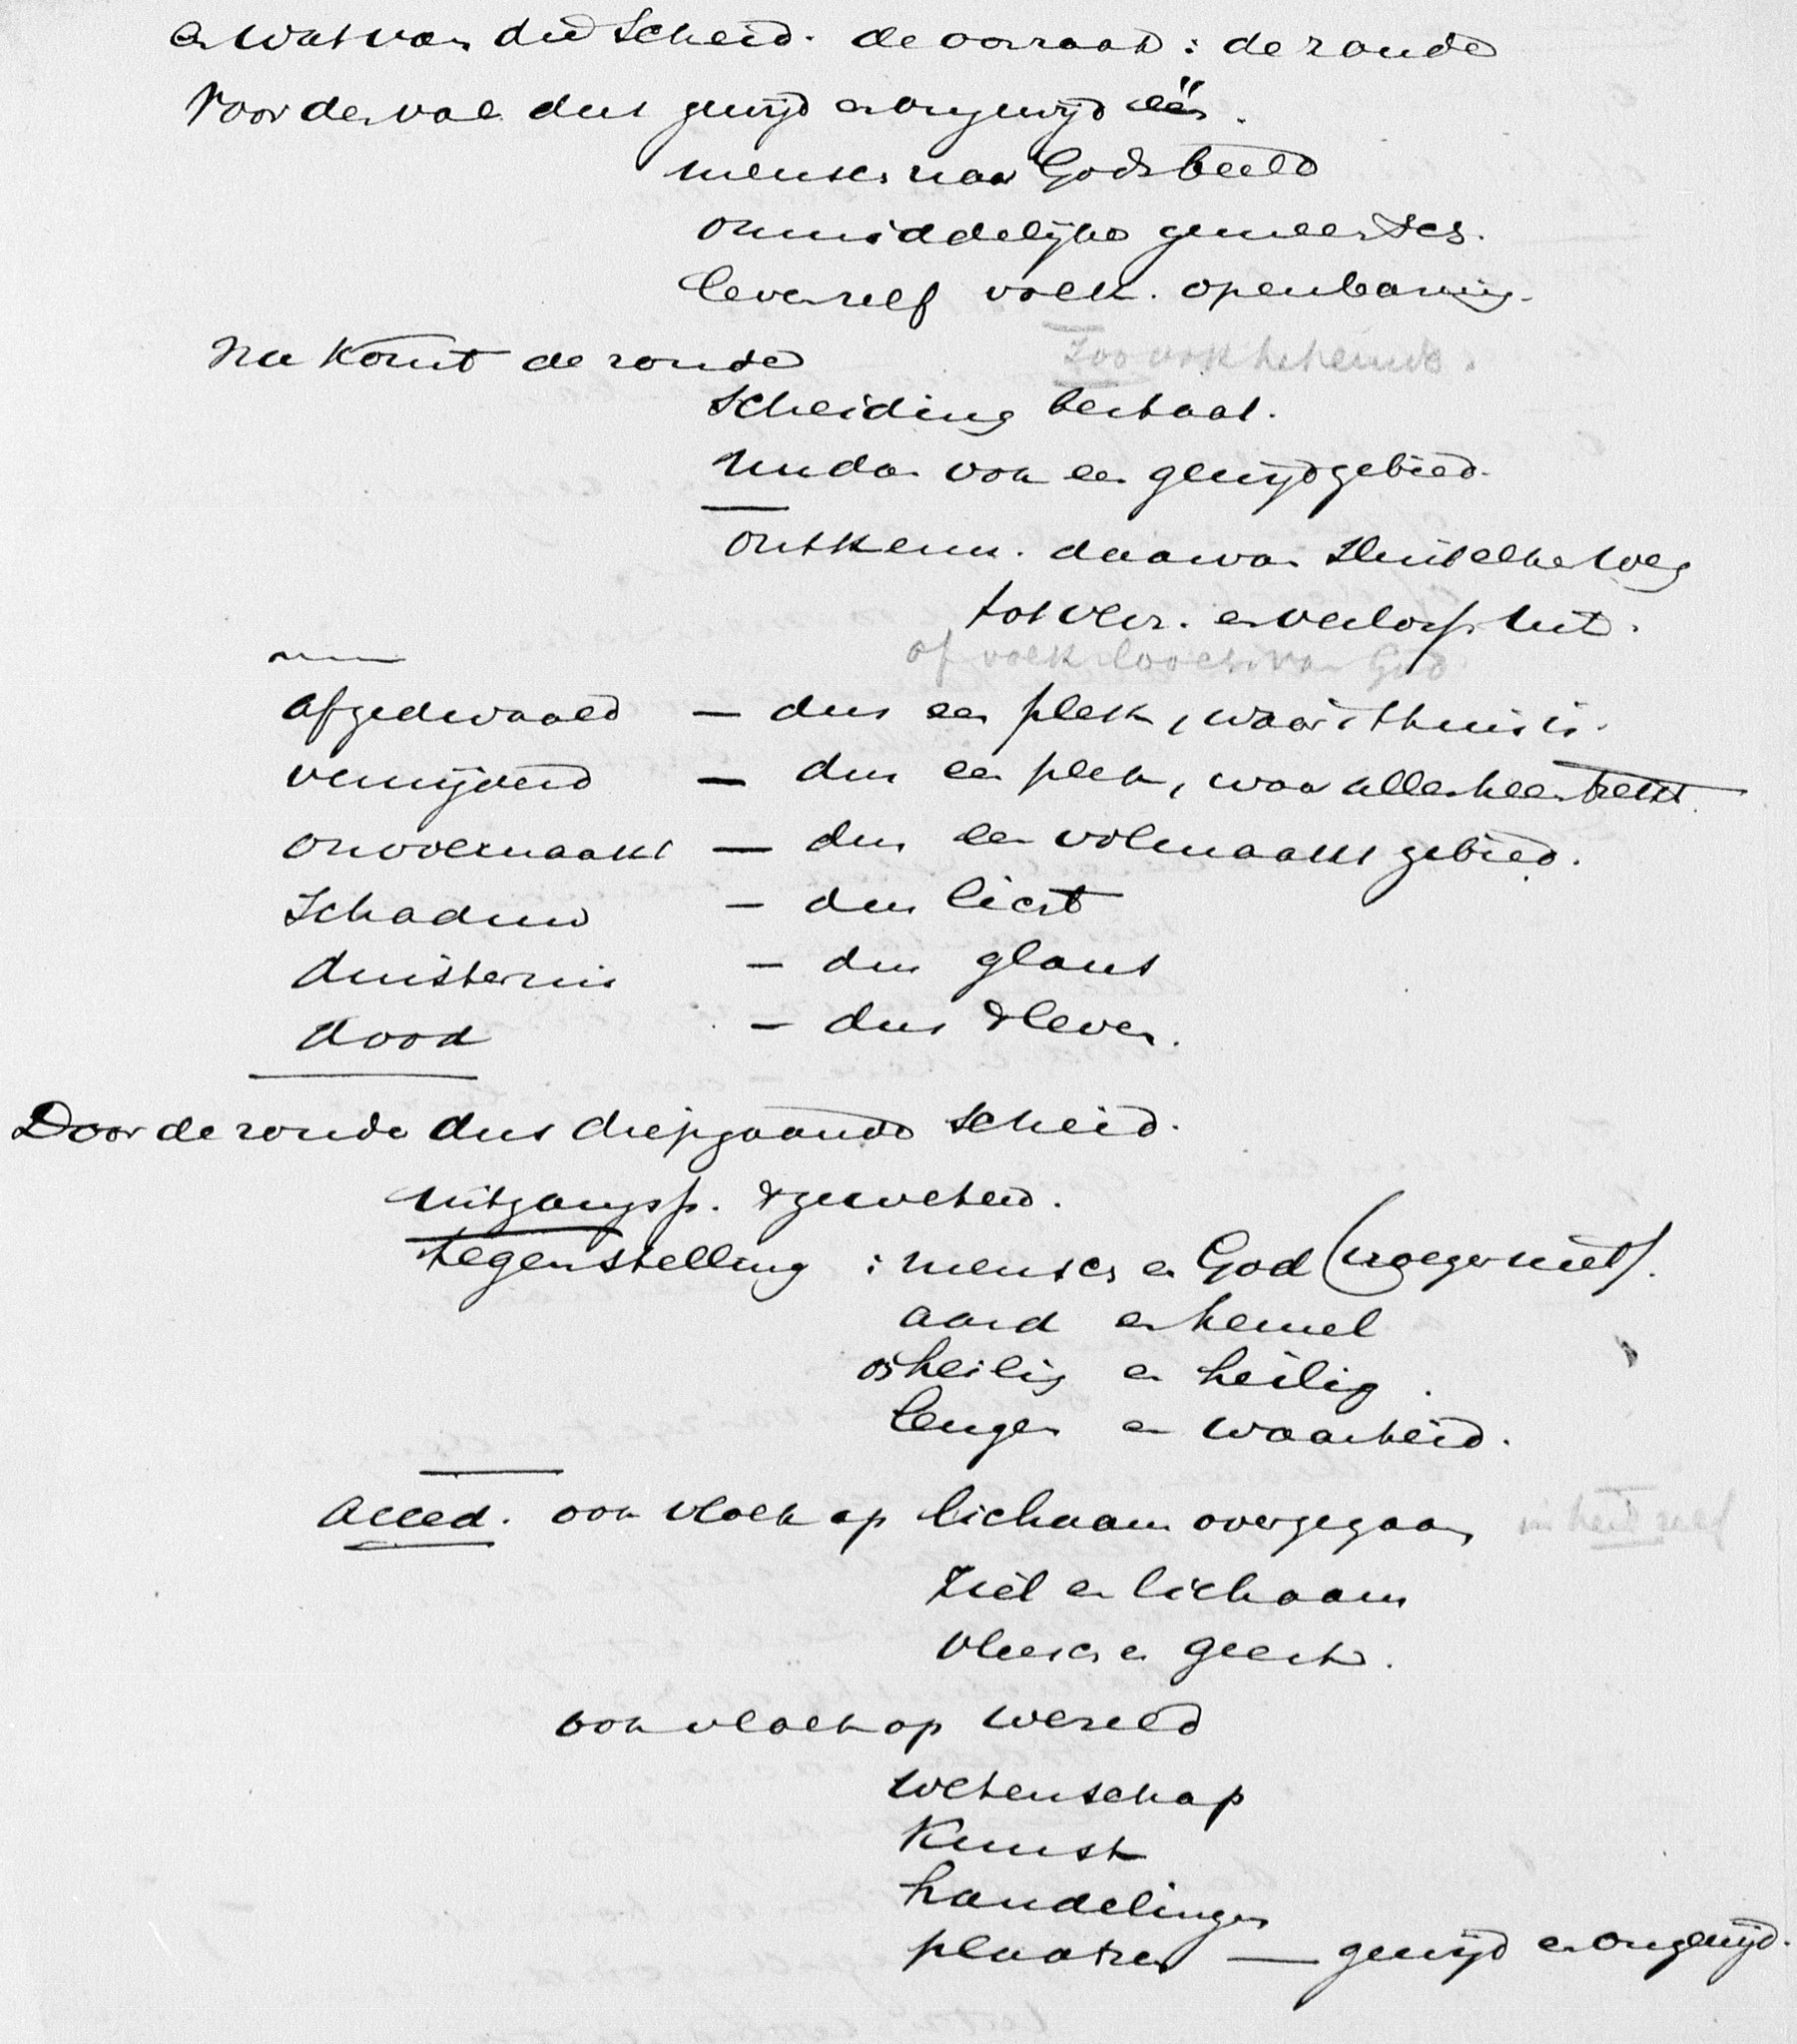 en wat van die scheid. de oorzaak : de zonde
Voor den val dus gewijd en ongewijd één.
mensch naar Godsbeeld
onmiddelijke gemeensch.
leven zelf volk. openbaring.
Nu komt de zonde
Zoo ook h. hemel.
scheiding bestaat.
nu dan ook een gewijd gebied.
ontkenn. daarvan sluit elke weg
tot verz. en verlossp. uit.
of volk. looch. van God
nu
afgedwaald — dus een plek, waar i thuis is.
verwijderd — dus een plek, waar alles heen trekt.
onvolmaakt — dus een volmaakt gebied.
schaduw — dus licht
duisternis — dus glans
dood — dus 't leven.
Door de zonde dus diepgaande scheid.
uitgangsp. 't geweten.
tegenstelling : mensch en God (vroeger niet).
aard en hemel
onheilig en heilig.
leugen en waarheid.
Acced. ook vloek op lichaam overgegaan
in hed. zelf
ziel en lichaam
vleesch en geest.
ook vloek op wereld
wetenschap
Kunst
handelingen
plaatsen — gewijd en ongewijd.